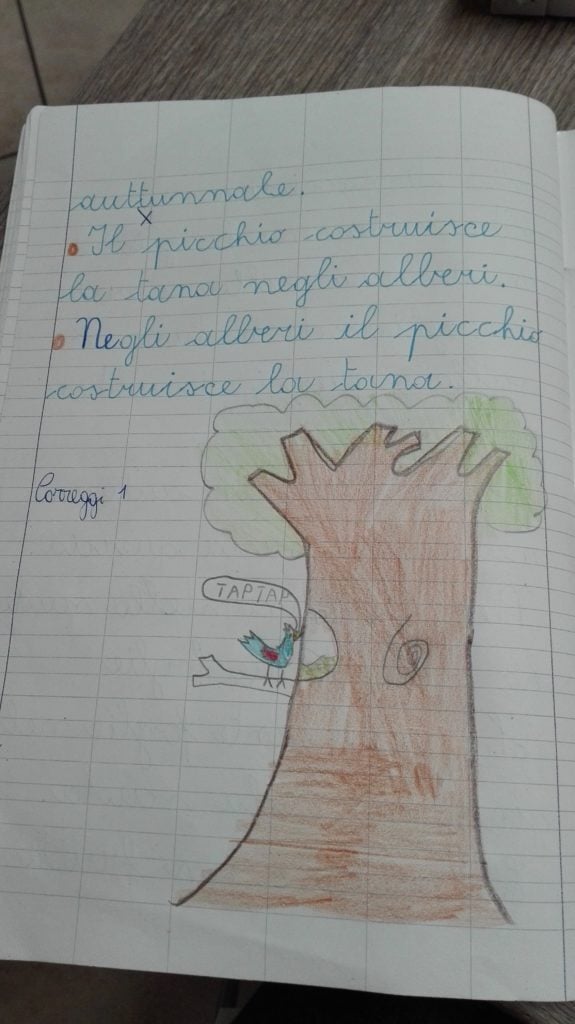 auttunnale.
x
Il picchio costruisce
la tana negli alberi.
Negli alberi il picchio
costruisce la tana.
Correggi 1
TAP TAP